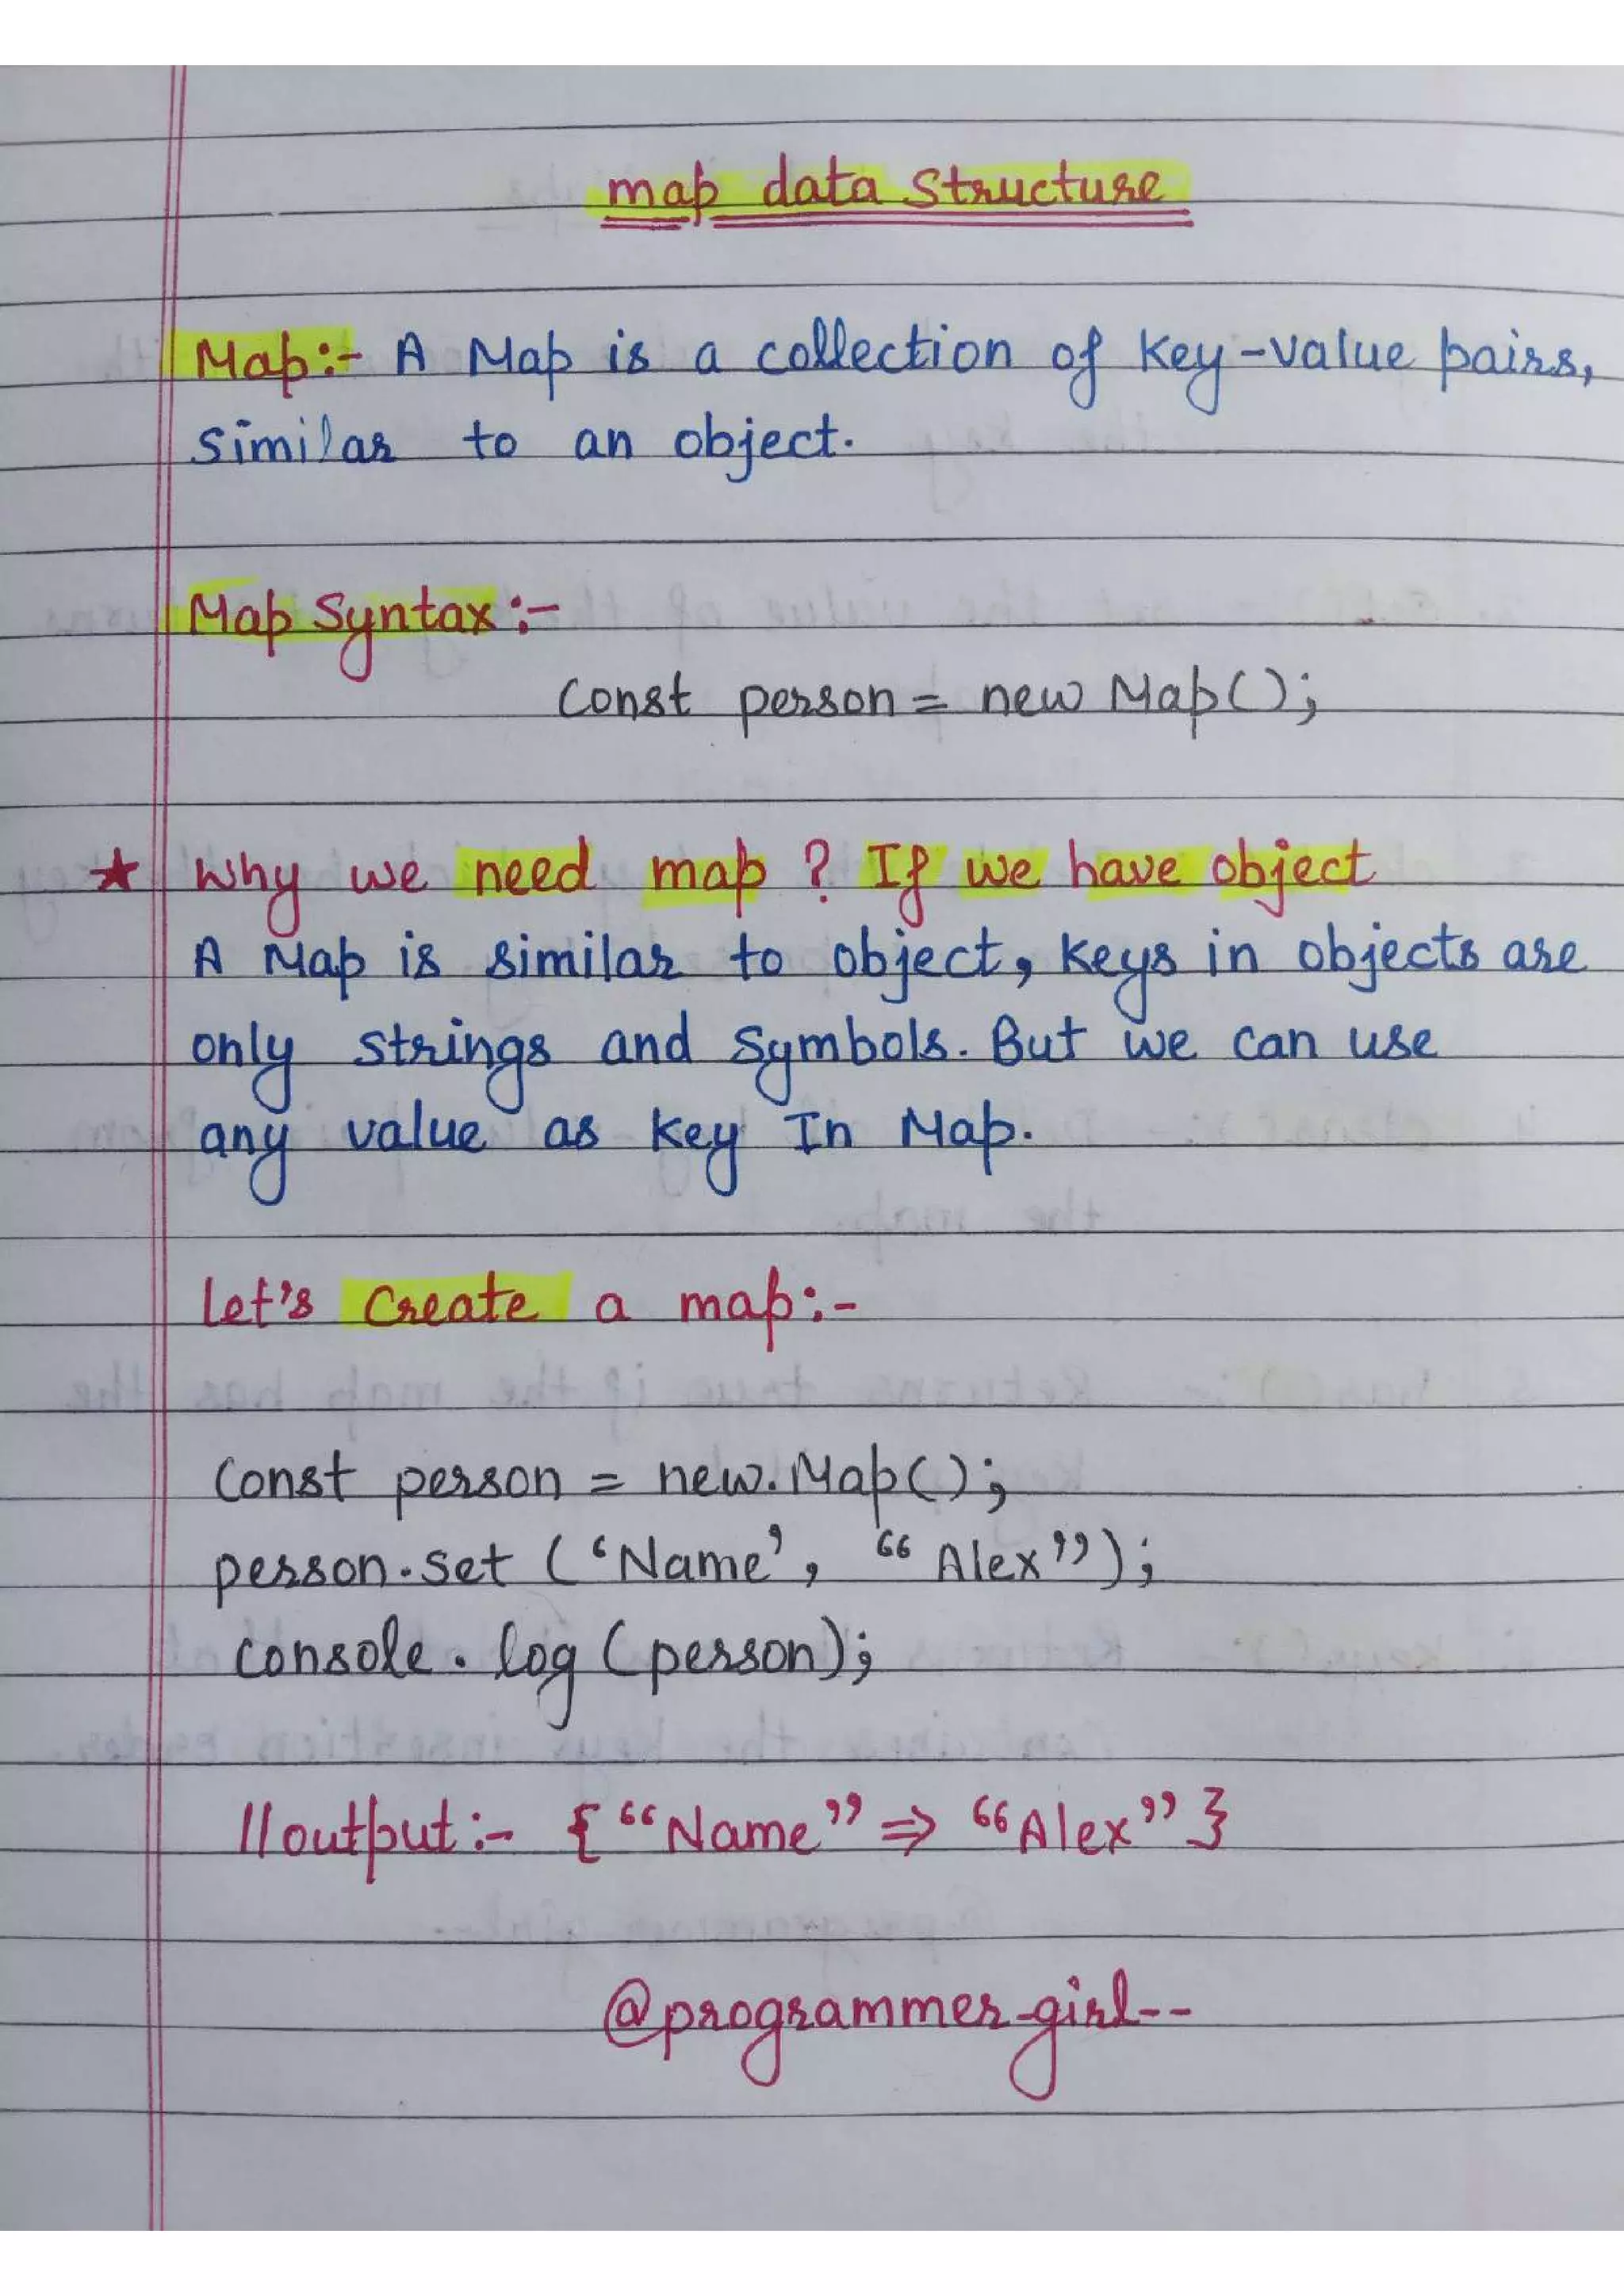 map data structure
Map:- A Map is a collection of key-value pairs,
similar to an object.
Map Syntax:-
const person = new Map();
★ Why we need map? If we have object
A Map is similar to object, keys in objects are
only strings and symbols. But we can use
any value as key In Map.
Let's create a map:-
const person = new.Map();
person.set ('Name', "Alex");
console.log (person);
//output:- {"Name" => "Alex"}
@programmer-girl--